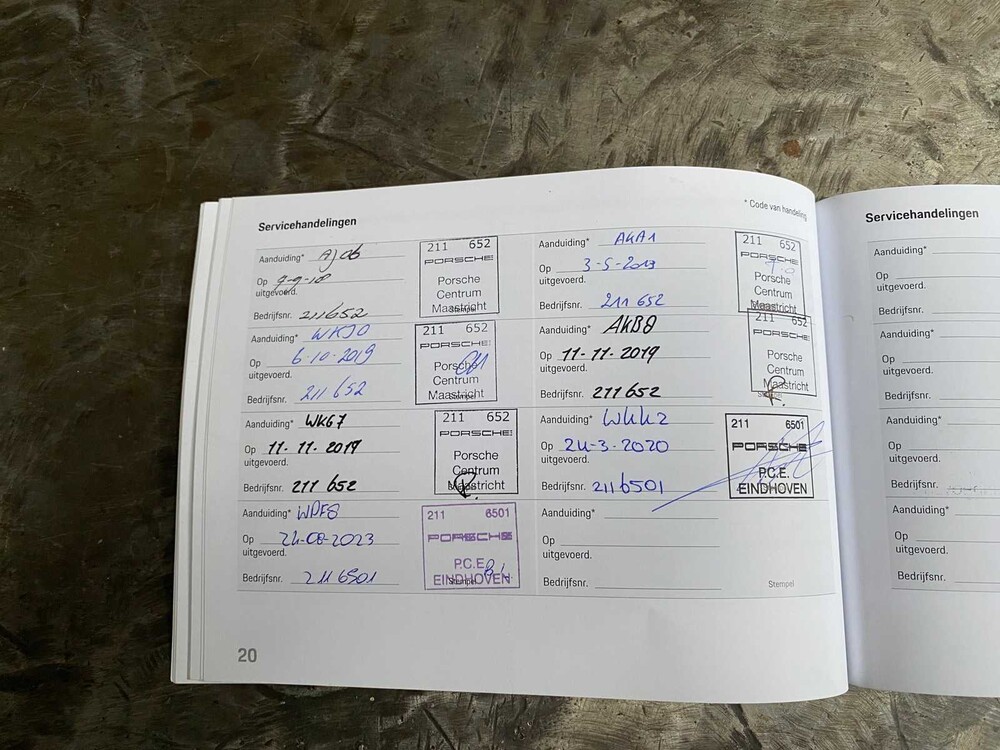 * Code van handeling
Servicehandelingen
Aanduiding* AJ06
Op 9-9-18
uitgevoerd.
Bedrijfsnr. 211652
211 652
PORSCHE
Porsche
Centrum
Maastricht
Stempel
Aanduiding* AKA1
Op 3-5-2019
uitgevoerd.
Bedrijfsnr. 211 652
211 652
PORSCHE
Porsche
Centrum
Maastricht
Aanduiding* WKJ0
Op 6-10-2019
uitgevoerd.
Bedrijfsnr. 211 652
211 652
PORSCHE
Porsche
Centrum
Maastricht
Aanduiding* AKB8
Op 11-11-2019
uitgevoerd.
Bedrijfsnr. 211 652
211 652
PORSCHE
Porsche
Centrum
Maastricht
Aanduiding* WKG7
Op 11-11-2019
uitgevoerd.
Bedrijfsnr. 211 652
211 652
PORSCHE
Porsche
Centrum
Maastricht
Aanduiding* WKK2
Op 24-3-2020
uitgevoerd.
Bedrijfsnr. 2116501
211 6501
PORSCHE
P.C.E.
EINDHOVEN
Aanduiding* WPF8
Op 24-08-2023
uitgevoerd.
Bedrijfsnr. 2116501
211 6501
PORSCHE
P.C.E.
EINDHOVEN
Stempel
Aanduiding*
Op
uitgevoerd.
Bedrijfsnr.
Stempel
20
Servicehandelingen
Aanduiding*
Op
uitgevoerd.
Bedrijfsnr.
Aanduiding*
Op
uitgevoerd.
Bedrijfsnr.
Aanduiding*
Op
uitgevoerd.
Bedrijfsnr.
Aanduiding*
Op
uitgevoerd.
Bedrijfsnr.